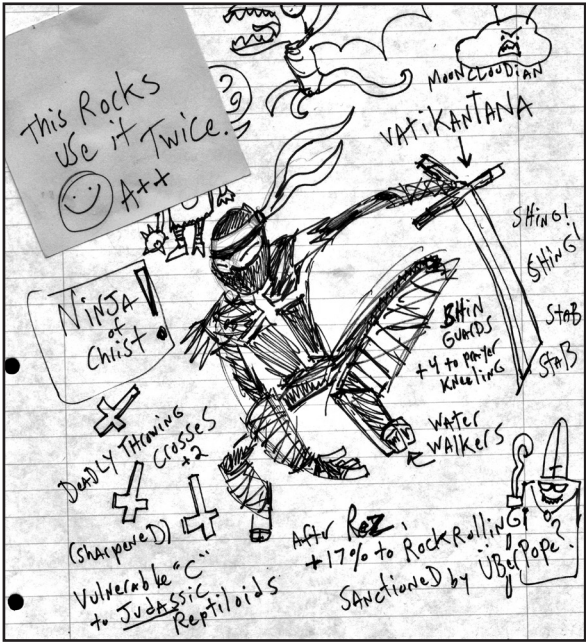 This Rocks
use it Twice.
A++
MOONCLOUDIAN
VATIKANTANA
SHING!
SHING!
STAB
STAB
NiNJA
of
Christ!
SHIN
GUARDS
+4 to prayer
KNEELING
WATER
WALKERS
DEADLY THROWING
CROSSES
+2
(SHARPENED)
Vulnerable "C"
to JUDASSIC
REPTiLOiDS
After Rez,
+17% to RockRolling
SANCTIONED by ÜberPope?
?